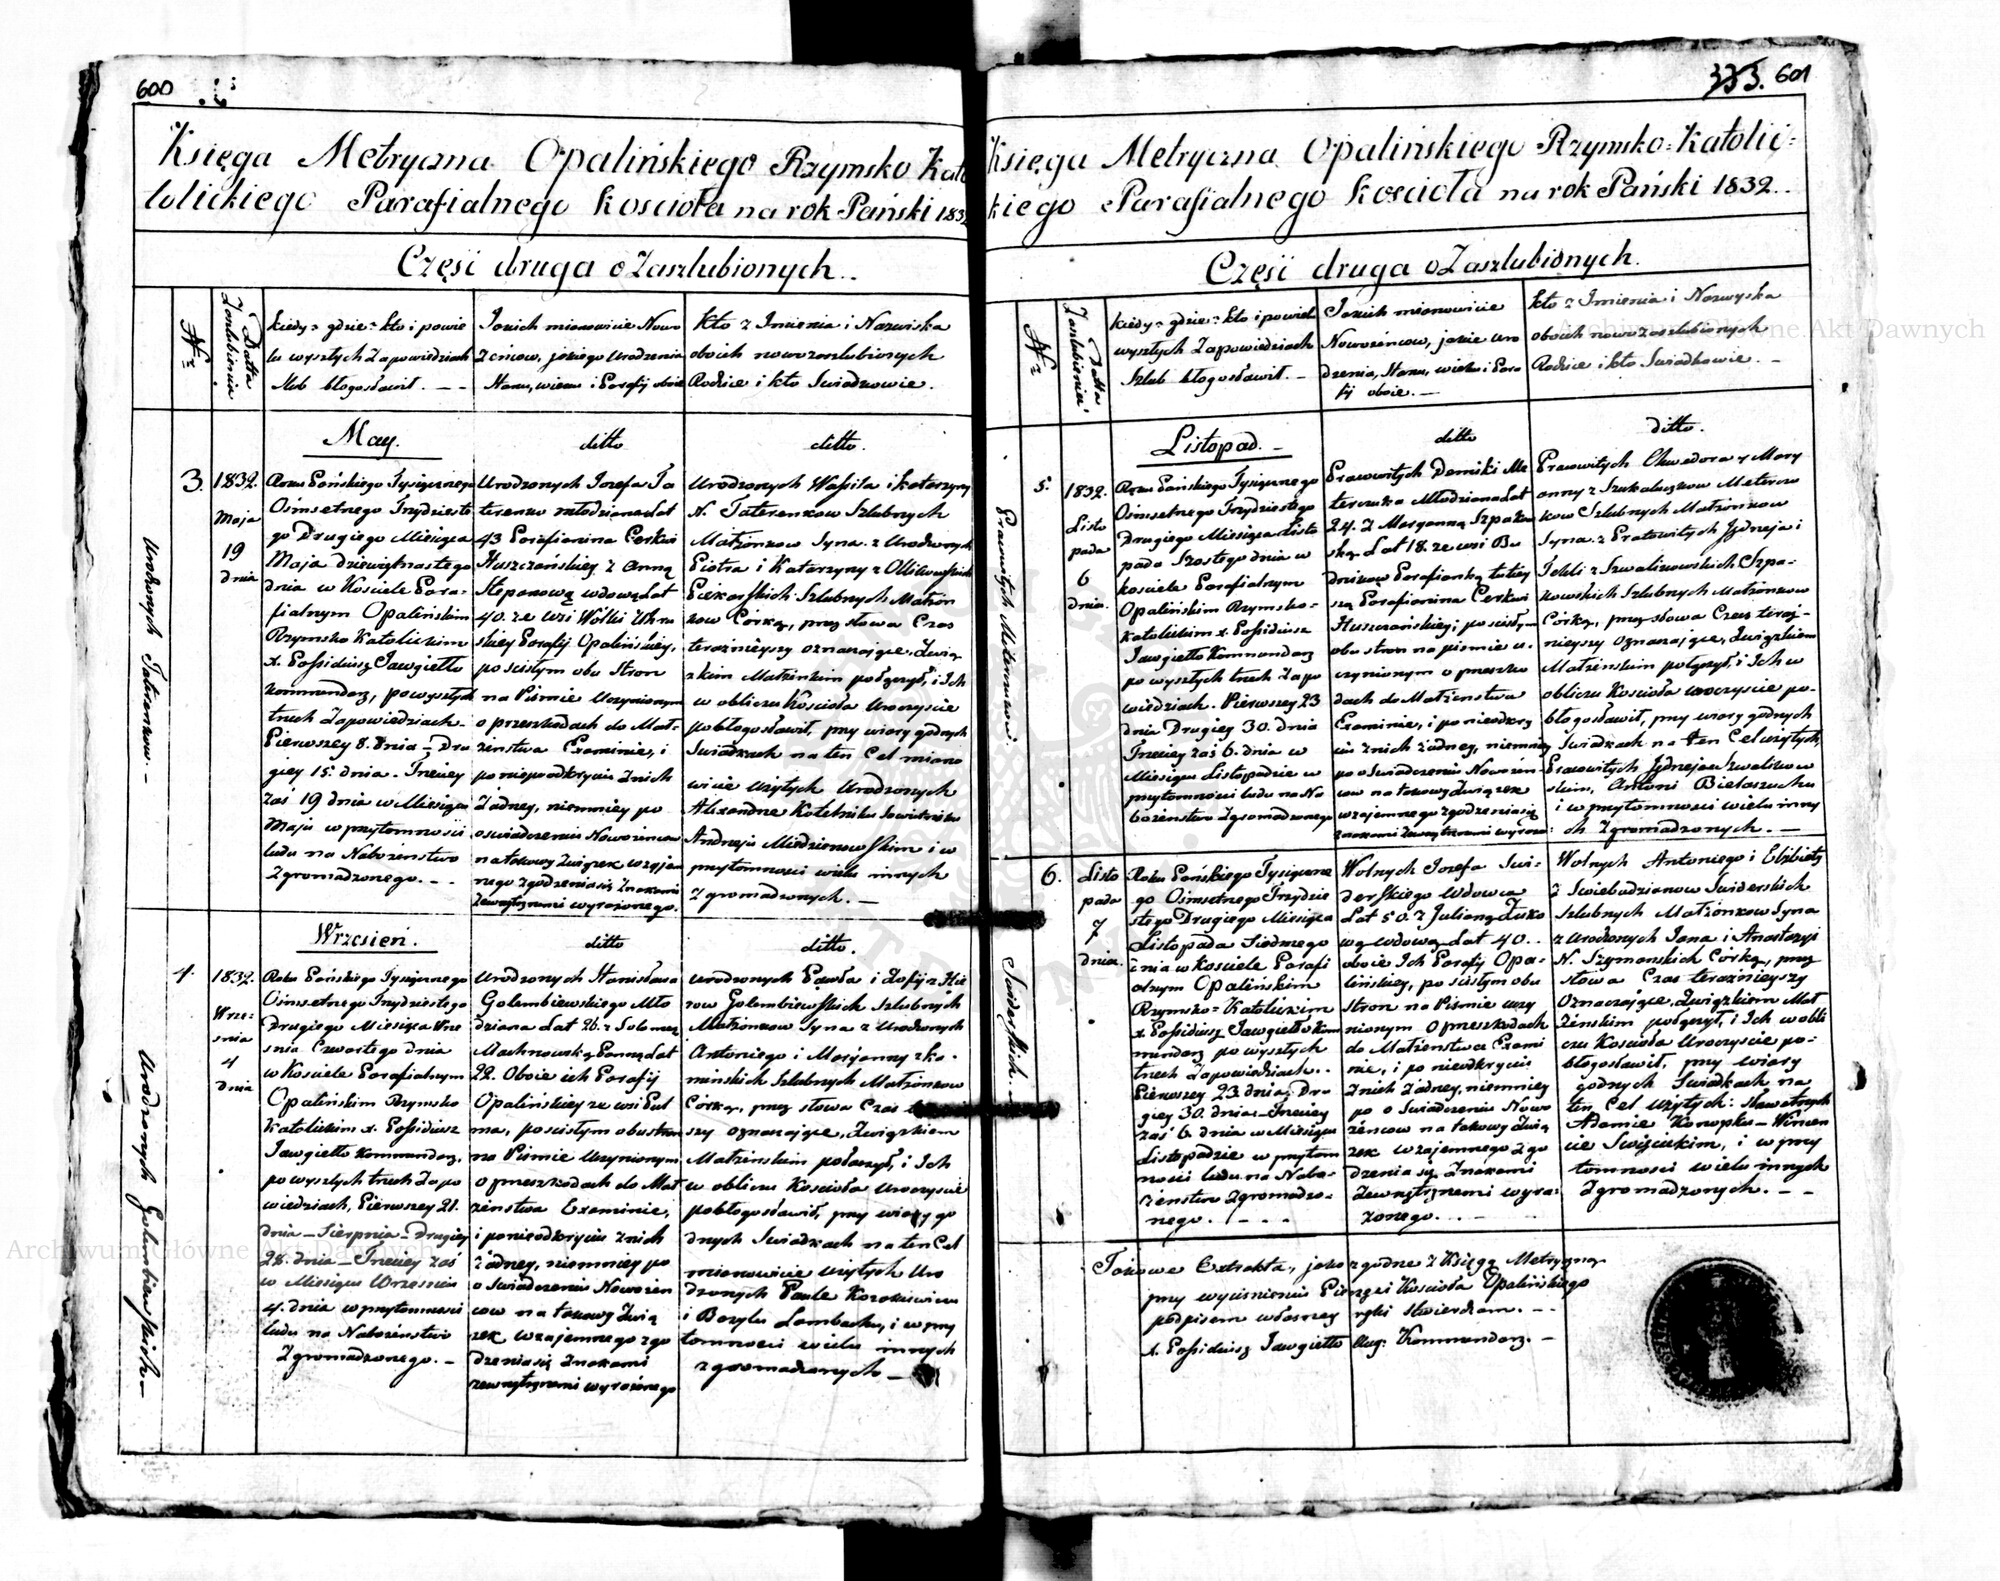 600
Księga Metryczna Opalińskiego Rzymsko Kato
tolickiego Parafialnego Kościoła na rok Pański 1832
Część druga o Zaszlubionych.
Nr
Datta Zaszlubienia
kiedy? gdzie? kto i powie
lu wyszłych Zapowiedziach
ślub błogosławił. — —
Jakich mianowicie Nowo
Zeńcow, jakiego Urodzenia
Stanu, wieku i Parafij oboie
Kto z Imienia i Nazwiska
oboich nowozaszlubionych
Rodzice i kto Swiadkowie.
May.
ditto
ditto.
3.
1832.
Maja
19
dnia
Urodzonych Tatarenkow. —
Roku Pańskiego Tysiącznego
Ośmsetnego Trzydzieste
go Drugiego Miesiąca
Maja dziewiętnastego
dnia w Kościele Para-
fialnym Opalińskim
Rzymsko Katolickim
x. Possidiusz Jawgiełło
Kommendarz, po wyszłych
trzech Zapowiedziach.
Pierwszey 8. dnia – Dru
giey 15. dnia – Trzeciey
zaś 19 dnia w Miesiącu
Maju w przytomności
ludu na Nabożeństwo
Zgromadzonego. — .
Urodzonych Jozefa Ta
terenka młodziana Lat
43 Parafianina Cerkwi
Huszczańskiey z Anną
Stepanową wdową Lat
40. ze wsi Wolki Uhru
skiey Parafij Opalińskiey,
po ścisłym obu Stron
na Piśmie Uczynionym
o przeszkodach do Mał-
żeństwa Examinie, i
po nieodkryciu Znich
Żadney, niemniey po
oświadczeniu Nowożeńcow
na takowy Związek wzajem
nego zgodzenia się Znakami
Zewnętrznemi wyrażonego.
Urodzonych Wasila i Katarzyny
N. Taterenkow Szlubnych
Małżonkow Syna z Urodzonych
Piotra i Katarzyny z
Piekarskich Szlubnych Małżon
kow Corką, przez słowa Czas
teraznieyszy oznaczające, Zwią
zkiem Małżeńkim połączył, i Ich
w obliczu Kościoła Uroczyście
pobłogosławił, przy wiary godnych
Swiadkach na ten Cel miano
wicie użytych Urodzonych
Alexandrze Kotelniku
Andrzeju Miedzianowskim i w
przytomności wielu innych
Zgromadzonych. —
Wrzesień.
ditto
ditto.
4.
1832.
Wrze-
śnia
4
dnia
Urodzonych Golembiewskich —
Roku Pańskiego Tysiącznego
Ośmsetnego Trzydziestego
Drugiego Miesiąca Wrze
śnia Czwartego dnia
w Kościele Parafialnym
Opalińskim Rzymsko
Katolickim x. Possidiusz
Jawgiełło Kommendarz,
po wyszłych trzech Zapo
wiedziach, Pierwszey 21.
dnia – Sierpnia – Drugiey
28. dnia – Trzeciey zaś
w Miesiącu Wrześniu
4. dnia w przytomności
ludu na Nabożeństwo
Zgromadzonego. —
Urodzonych Stanisława
Golembiewskiego Mło
dziana Lat 26. z Salomeą
Machnowską Panną Lat
22. Oboie ich Parafij
Opalińskiey ze wsi Pul
ma, po ścisłym obu stron
na Piśmie Uczynionym
o przeszkodach do Mał
żeństwa Examinie,
i po nieodkryciu Znich
Żadney, niemniey po
oświadczeniu Nowożeń
cow na takowy Zwią
zek wzajemnego zgo
dzenia się Znakami
zewnętrznemi wyrażonego
Urodzonych Pawła i Zofij z
Golembiewskich Szlubnych
Małżonkow Syna z Urodzonych
Antoniego i Maryanny z Ko-
mińskich Szlubnych Małżonkow
Corką, przez słowa Czas
szy oznaczające, Związkiem
Małżeńskim połączył, i Ich
w obliczu Kościoła Uroczyście
pobłogosławił, przy wiary go
dnych Swiadkach na ten Cel
mianowicie użytych Uro
dzonych Pawle
i Bazylu i w przy
tomności wielu innych
zgromadzonych —
333. 601
Księga Metryczna Opalińskiego Rzymsko-Katolic-
kiego Parafialnego Kościoła na rok Pański 1832.
Część druga o Zaszlubionych.
Nr
Datta Zaszlubienia
Kiedy? gdzie? kto i po wielu
wyszłych Zapowiedziach
Szlub błogosławił. —
Jakich mianowicie
Nowożeńcow, jakie Uro
dzenia, Stanu, wieku i Para
fij oboie. —
Kto z Imienia i Nazwyska
oboich nowozaszlubionych
Rodzice i kto Swiadkowie. —
Listopad. —
ditto
ditto.
5.
1832.
Listo
pada
6
dnia.
Pracowitych Meterukow
Roku Pańskiego Tysiącznego
Ośmsetnego Trzydziestego
Drugiego Miesiąca Listo
pada Szostego dnia w
Kościele Parafialnym
Opalińskim Rzymsko-
Katolickim x. Possidiusz
Jawgiełło Kommendarz
po wyszłych trzech Zapo
wiedziach. Pierwszey 23
dnia Drugiey 30. dnia
Trzeciey zaś 6. dnia w
Miesiącu Listopadzie w
przytomności ludu na Na
bożeństwo Zgromadzonego
Pracowitych Demki Me
teruka Młodziana Lat
24. z Maryanną Szpakow
ską Lat 18. ze wsi Bu
dnikow Parafianką tutey
szą Parafianina Cerkwi
Huszczańskiey; po ścisłym
obu stron na piśmie u-
czynionym o przeszko
dach do Małżeństwa
Examinie, i po nieodkry
ciu znich żadney, niemniey
po oświadczeniu Nowożeń
cow na takowy Związek
wzajemnego zgodzenia się
znakami Zewnętrznemi wyrażo:
Pracowitych Chwedora y Mary
anny z Meteru
kow Szlubnych Małżonkow
Syna z Pracowitych Jędrzeja i
Tekli z Szwalikowskich Szpa-
kowskich Szlubnych Małżonkow
Corką, przez słowa Czas teraz-
nieyszy oznaczające, Związkiem
Małżeńskim połączył, i Ich w
obliczu Kościoła uroczyście po-
błogosławił, przy wiary godnych
Swiadkach na ten Cel użytych,
Pracowitych Jędrzeju Szwalikow
skim, Antoni
i w przytomności wielu inny
ch Zgromadzonych. —
6.
Listo
pada
7
dnia.
Swiderskich. —
Roku Pańskiego Tysiączne
go Ośmsetnego Trzydzie
stego Drugiego Miesiąca
Listopada Siodmego
dnia w Kościele Parafi
alnym Opalińskim
Rzymsko-Katolickim
x. Possidiusz Jawgiełło Kom
mendarz po wyszłych
trzech Zapowiedziach.
Pierwszey 23. dnia; Dru
giey 30. dnia – Trzeciey
zaś 6. dnia w Miesiącu
Listopadzie w przytom
ności ludu na Nabo-
żeństwo Zgromadzo-
nego. — . . .
Wolnych Jozefa Swi-
derskiego Wdowca
Lat 50. z Julianną Żuko
wą wdową Lat 40..
oboie Ich Parafij Opa-
lińskiey, po ścisłym obu
Stron na Piśmie uczy
nionym o przeszkodach
do Małżeństwa Exami
nie, i po nieodkryciu
Znich Żadney, niemniey
po oświadczeniu Nowo
żeńcow na takowy Zwią
zek wzajemnego zgo
dzenia się Znakami
Zewnętrznemi wyra:
żonego. . . —
Wolnych Antoniego i Elżbiety
z Swiebodzianow Swiderskich
Szlubnych Małżonkow Syna
z Urodzonych Jana i Anastazyi
N. Szymanskich Corką, przez
słowa Czas teraznieyszy
Oznaczające, Związkiem Mał
żeńskim połączył, i Ich w obli
czu Kościoła Uroczyście po-
błogosławił, przy wiary
godnych Swiadkach na
ten Cel użytych: sławetnych
Adamie Konopku – Wincen
cie i w przy
tomności wielu innych
Zgromadzonych. — —
Takowe Extrakta, jako zgodne z Księgą Metryczną
przy wyciśnieniu Pieczęci Kościoła Opalińskiego
podpisem własney ręki stwierdzam. — —
x. Possidiusz Jawgiełło Aug: Kommendarz. —
Archiwum Główne Akt Dawnych
Archiwum Główne Akt Dawnych